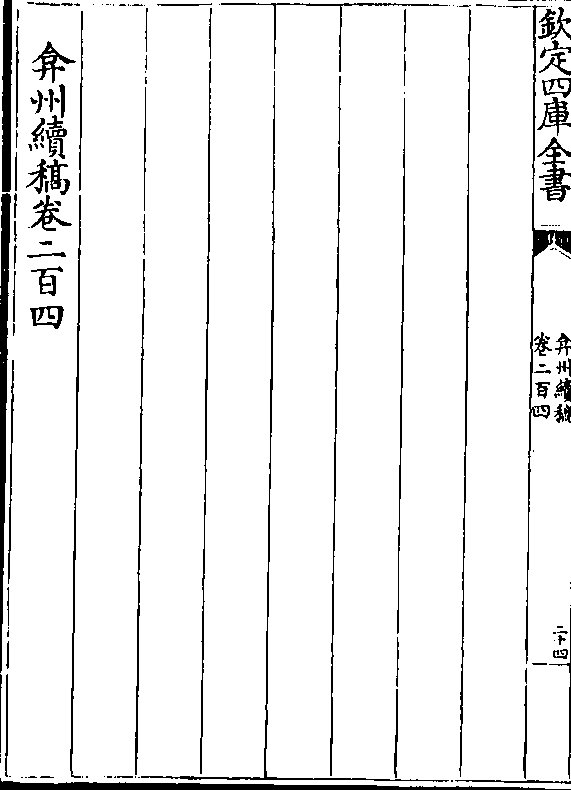 欽定四庫全書
弇州續稿
卷二百四
二十四
弇州續稿卷二百四